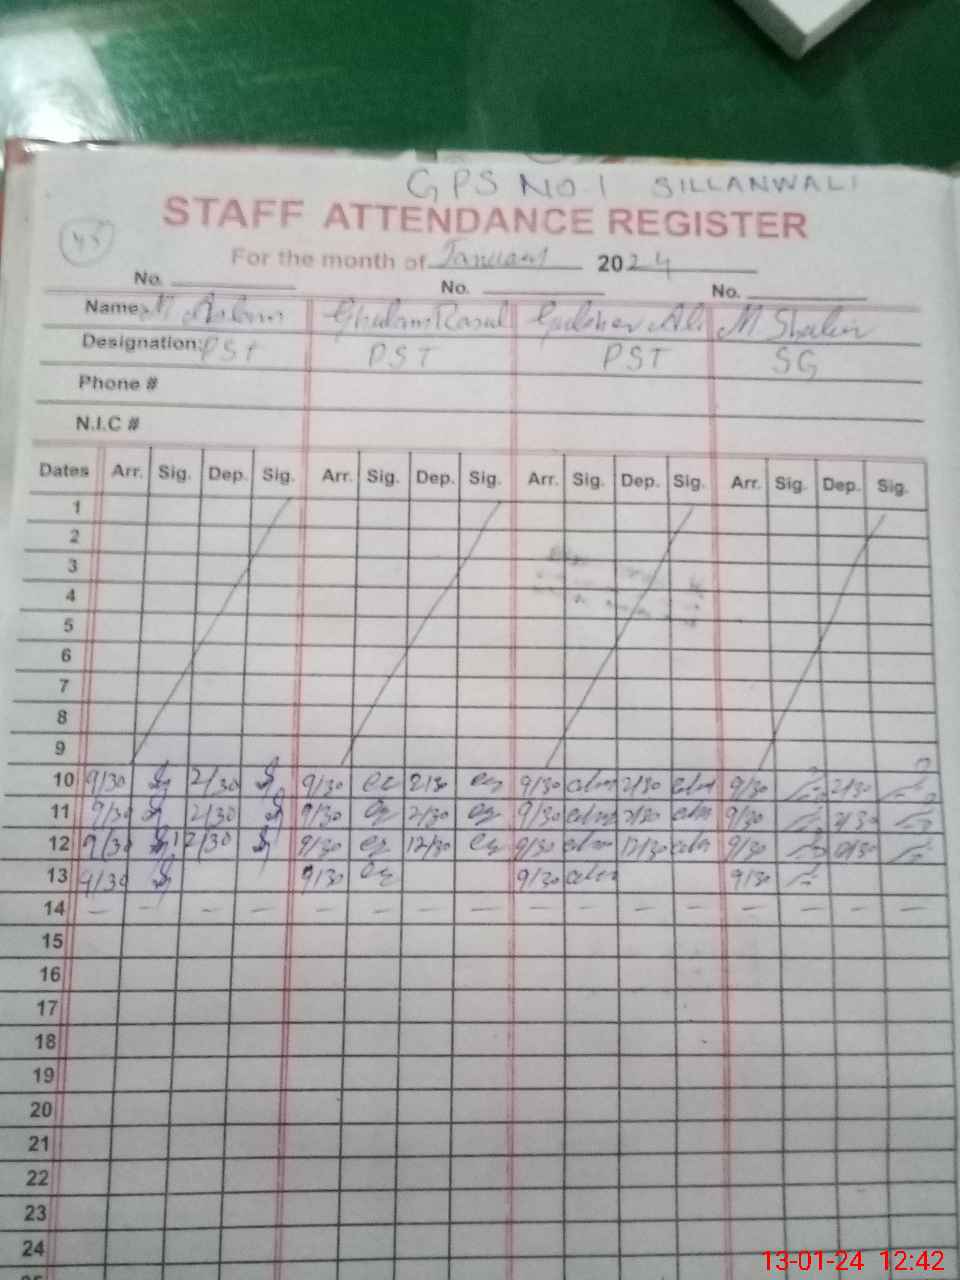 GPS NO.1 SILLANWALI
STAFF ATTENDANCE REGISTER
45
For the month of January 2024
No. No. No.
Name: M Aslam Ghulam Rasul Gulsher Ali M Shakir
Designation: PST PST PST SG
Phone #
N.I.C #
Dates Arr. Sig. Dep. Sig. Arr. Sig. Dep. Sig. Arr. Sig. Dep. Sig. Arr. Sig. Dep. Sig.
1
2
3
4
5
6
7
8
9
10 9/30 2/30 9/30 2/30 9/30 2/30 9/30 2/30
11 9/30 2/30 9/30 2/30 9/30 2/30 9/30 2/30
12 9/30 12/30 9/30 12/30 9/30 12/30 9/30
13 9/30 9/30 9/30 9/30
14 — — — — — — — — — — — — — — — —
15
16
17
18
19
20
21
22
23
24
13-01-24 12:42